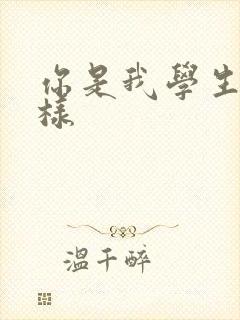 你是我學生
樣
溫千醉